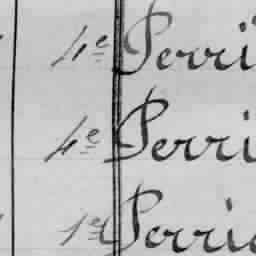 4e Perri
4e Perri
1er Perri